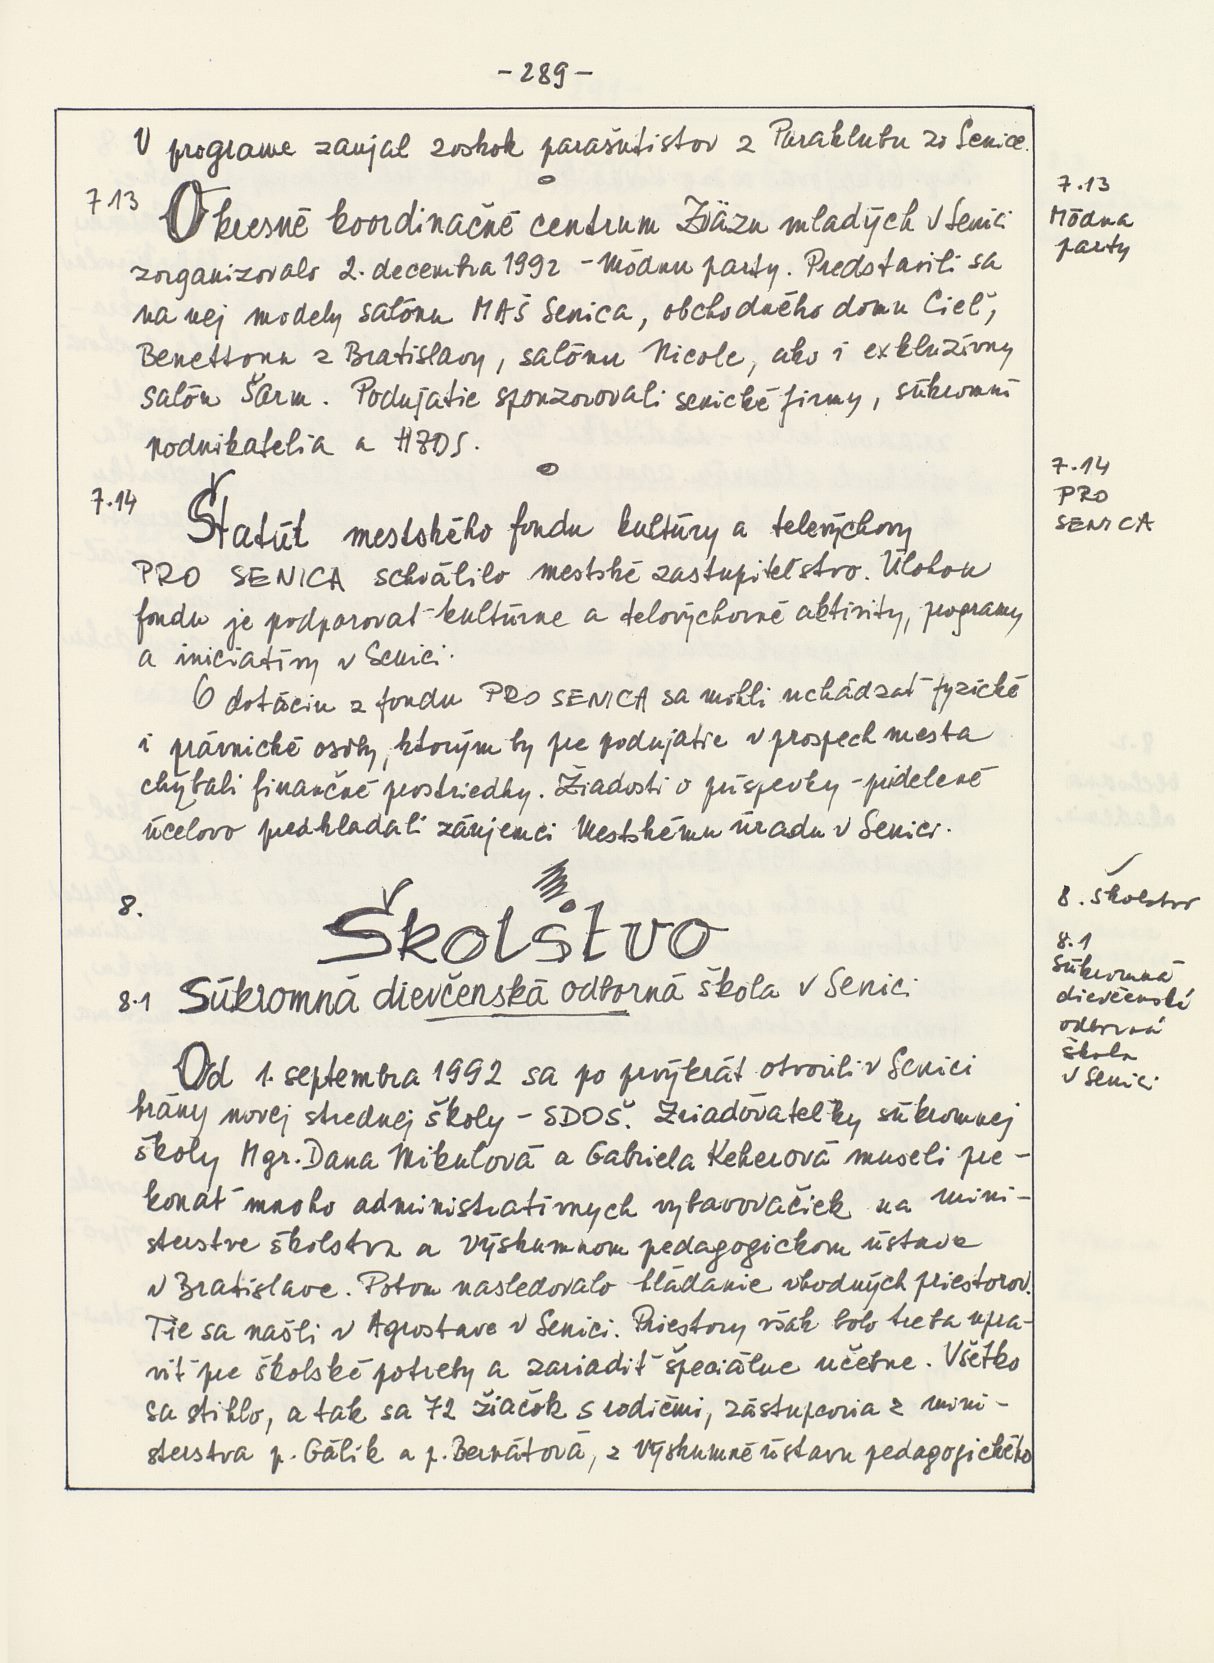 - 289 -
V programe zaujal zoskok parašutistov z Paraklubu zo Senice.
7.13
Okresné koordinačné centrum Zväzu mladých v Senici
zorganizovalo 2. decembra 1992 - Módnu party. Predstavili sa
na nej modely salónu MAŠ Senica, obchodného domu Cieľ,
Benettonu z Bratislavy, salónu Nicole, ako i exkluzívny
salón Šarm. Podujatie sponzorovali senické firmy, súkromní
podnikatelia a HZDS.
7.14
Štatút mestského fondu kultúry a televýchovy
PRO SENICA schválilo mestské zastupiteľstvo. Úlohou
fondu je podporovať kultúrne a telovýchovné aktivity, programy
a iniciatívy v Senici.
O dotáciu z fondu PRO SENICA sa mohli uchádzať fyzické
i právnické osoby, ktorým by pre podujatie v prospech mesta
chýbali finančné prostriedky. Žiadosti o príspevky - pridelené
účelovo predkladali záujemci Mestskému úradu v Senici.
8.
Školstvo
8.1 Súkromná dievčenská odborná škola v Senici
Od 1. septembra 1992 sa po prvýkrát otvorili v Senici
brány novej strednej školy - SDOŠ. Zriaďovateľky súkromnej
školy Mgr. Dana Mikulová a Gabriela Keherová museli pre-
konať mnoho administratívnych vybavovačiek na mini-
sterstve školstva a Výskumnom pedagogickom ústave
v Bratislave. Potom nasledovalo hľadanie vhodných priestorov.
Tie sa našli v Agrostave v Senici. Priestory však bolo treba upra-
viť pre školské potreby a zariadiť špeciálne učebne. Všetko
sa stihlo, a tak sa 72 žiačok s rodičmi, zástupcovia z mini-
sterstva p. Gálik a p. Bernátová, z Výskumné ústavu pedagogického
7.13
Módna
party
7.14
PRO
SENICA
8. Školstvo
8.1
Súkromná
dievčenská
odborná
škola
v Senici